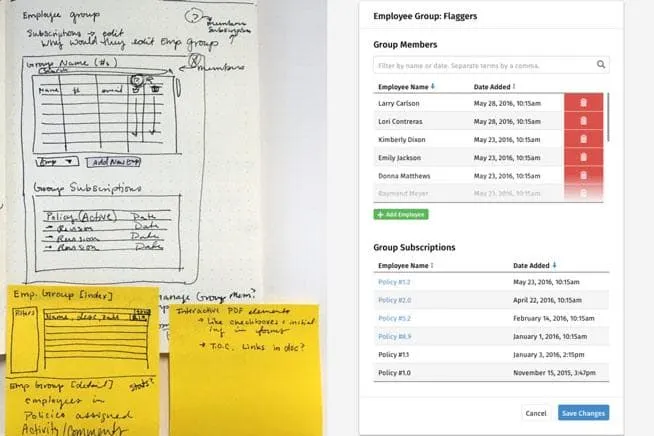 Employee group
Subscriptions → edit
Why would they edit Emp group
members
Subscription
Group Name (#s)
members
Search
Name # email
Emp ▼ Add New Emp
Group Subscriptions
Policy (Active) Date
→ Revision Date
→ Revision Date
→ Revision Date
Emp. Group [index]
Filters
Name, desc, date
Emp Group [detail] stats?
employees in
Policies assigned
Activity/Comments
manage Group Mem?
Interactive PDF elements
→ Like checkboxes + initial
ing in forms
→ T.O.C. Links in doc?
Employee Group: Flaggers
Group Members
Filter by name or date. Separate terms by a comma.
Employee Name Date Added
Larry Carlson May 28, 2016, 10:15am
Lori Contreras May 28, 2016, 10:15am
Kimberly Dixon May 23, 2016, 10:15am
Emily Jackson May 23, 2016, 10:15am
Donna Matthews May 23, 2016, 10:15am
Raymond Meyer May 23, 2016, 10:15am
+ Add Employee
Group Subscriptions
Employee Name Date Added
Policy #1.2 May 23, 2016, 10:15am
Policy #2.0 April 22, 2016, 10:15am
Policy #5.2 February 14, 2016, 10:15am
Policy #8.9 January 1, 2016, 10:15am
Policy #1.1 January 3, 2016, 2:15pm
Policy #1.0 November 15, 2015, 3:47pm
Cancel Save Changes